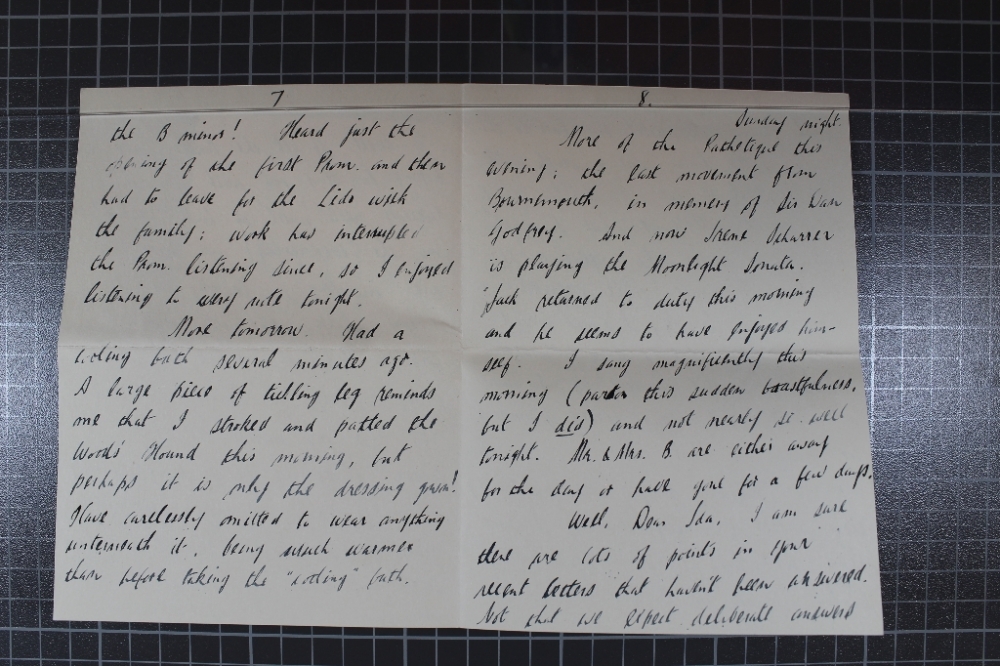 7
the B minor! Heard just the
opening of the first Prom. and then
had to leave for the Lido with
the family; work has interrupted
the Prom. listening since, so I enjoyed
listening to every note tonight.
More tomorrow. Had a
cooling bath several minutes ago.
A large piece of tickling leg reminds
me that I stroked and patted the
Wood's Hound this morning, but
perhaps it is only the dressing gown!
Have carelessly omitted to wear anything
underneath it, being much warmer
than before taking the "cooling" bath.
8.
Sunday night.
More of the Pathetique this
evening; the last movement from
Bournemouth, in memory of Sir Dan
Godfrey. And now Irene Scharrer
is playing the Moonlight Sonata.
Jack returned to duty this morning
and he seems to have enjoyed him-
self. I sang magnificently this
morning (pardon this sudden boastfulness,
but I did) and not nearly so well
tonight. Mr. & Mrs. B. are either away
for the day or have gone for a few days.
Well, Dear Ida, I am sure
there are lots of points in your
recent letters that haven't been answered.
Not that we expect deliberate answers